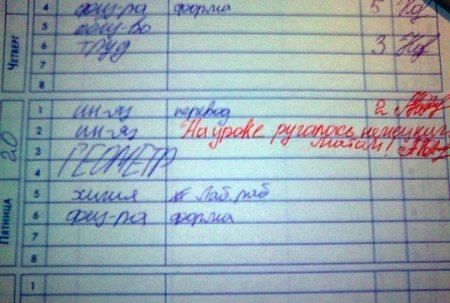 ЧЕТВЕРГ
4 физ-ра форма 5
5 общ-во
6 труд 3
7
8
ПЯТНИЦА 20
1 ин-яз перевод 2
2 ин-яз На уроке ругалась немецким
3 ГЕОМЕТР матом!
4
5 химия Лаб. раб
6 физ-ра форма
7
8
1